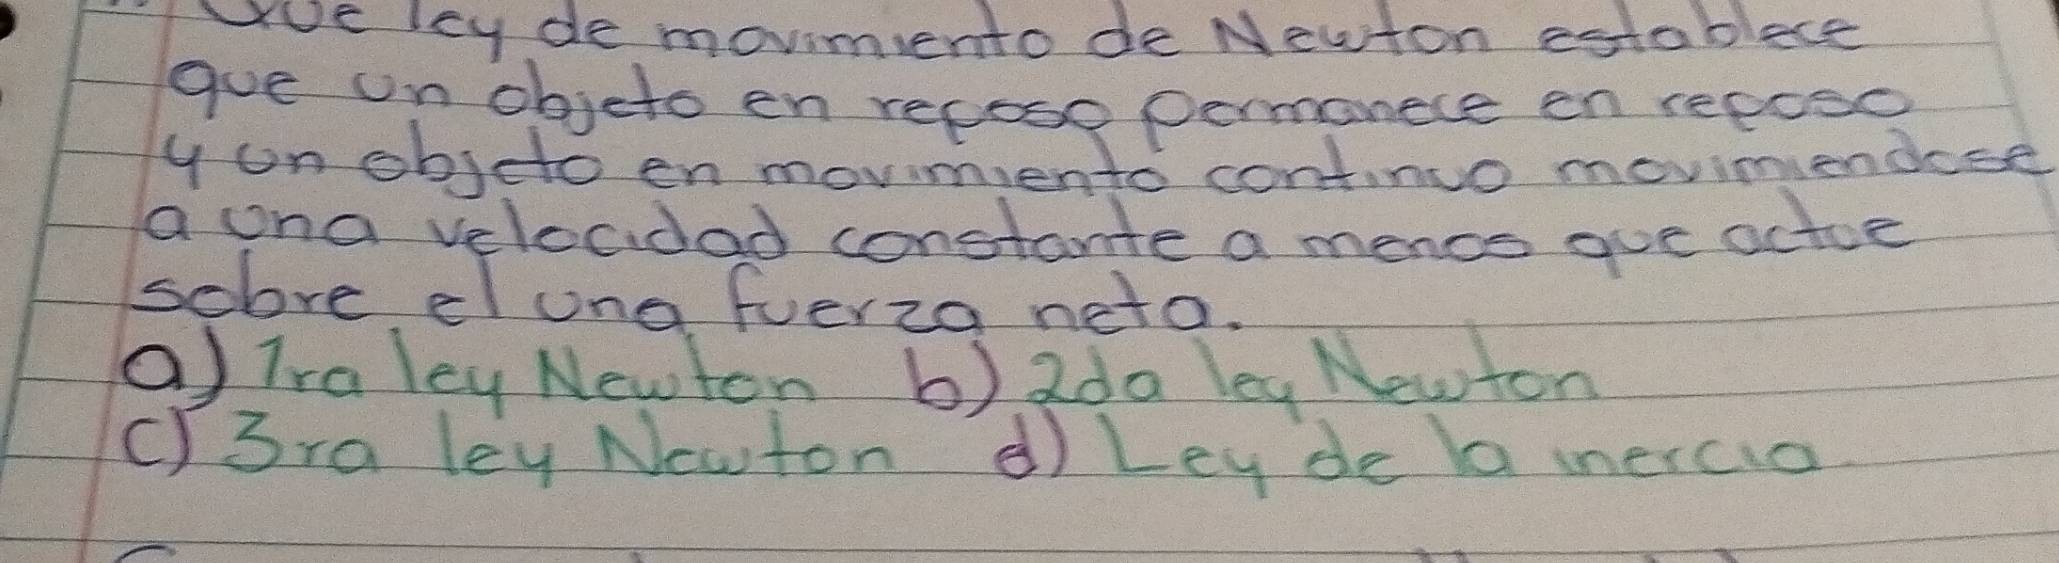 Que ley de movimiento de Newton establece
que un objeto en reposo permanece en reposo
y un objeto en movimiento continuo movimiendose
a una velocidad constante a menos que actue
sobre el una fuerza neta.
a) 1ra ley Newton b) 2da ley Newton
c) 3ra ley Newton d) Ley de la inercia